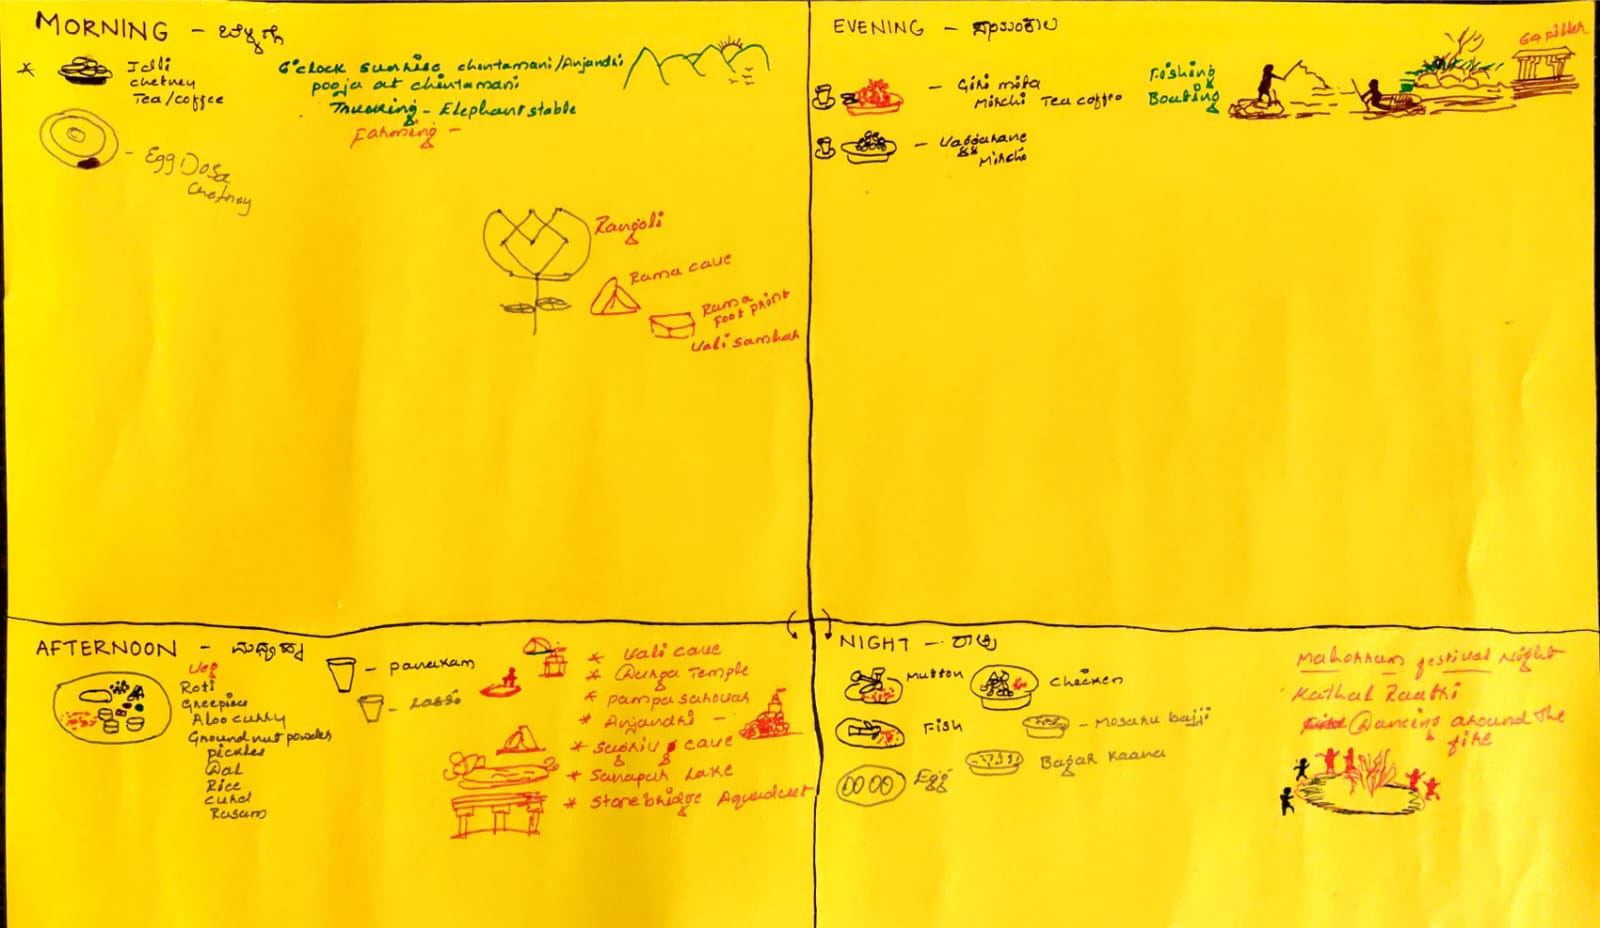 MORNING - ಬೆಳ್ಳಗ್ಗೆ
Idli
chetney
Tea/coffee
Egg Dosa
chetney
6'clock sunrise chintamani/Anjandhi
pooja at chintamani
Trucking - Elephant stable
Farming -
Rangoli
Rama cave
Rama
foot print
Vali samhar
EVENING - ಸಾಯಂಕಾಲ
- Giri mita
Mirchi Tea coffee
- Vaggarane
Mirchi
Fishing
Boating
64 piller
AFTERNOON - ಮಧ್ಯಾಹ್ನ
Veg
Roti
Greepiece
Aloo curry
Ground nut powder
pickles
Dal
Rice
curd
Rasam
- panakam
- Lassi
* Vali cave
* Durga Temple
* pampa sarovar
* Anjandhi -
* sugriv cave
* Sanapur Lake
* Stone bridge Aquaduct
NIGHT - ರಾತ್ರಿ
Mutton
Chicken
Fish
- Mosaru bajji
Egg
Bagar Kaana
Mahorrum festival Night
Kathal Raathi
Dancing around the
fire